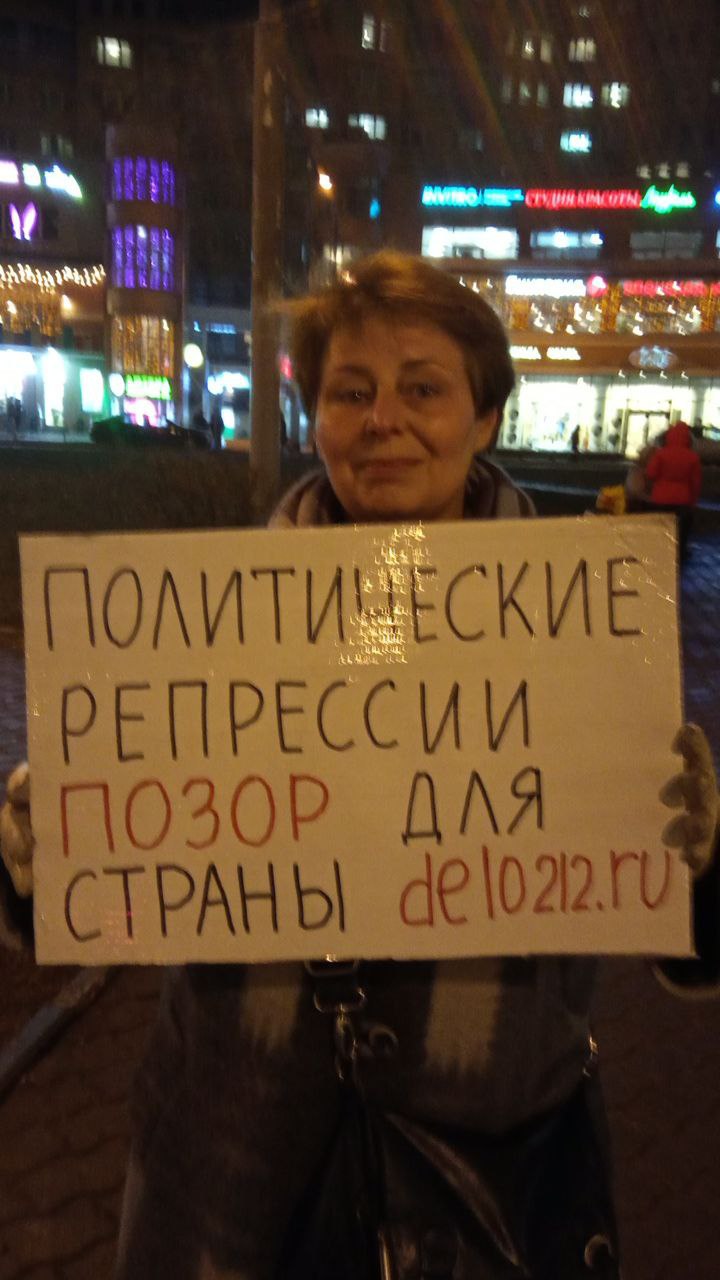 INVITRO
СТУДИЯ КРАСОТЫ
ПОЛИТИЧЕСКИЕ
РЕПРЕССИИ
ПОЗОР ДЛЯ
СТРАНЫ delo212.ru